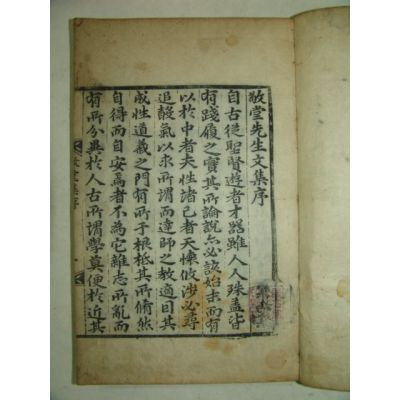 敬堂先生文集序
自古從聖賢遊者才器雖人人殊盖皆
有踐履之實其所論說亦必該始末而有
以於中者夫性諸已者天悚攸涉必尋
追醆氣以求所謂而達師之教適目其
成性道義之門有所于根柢其所脩然
自得而自安焉者不為它雜志所亂而
有所分異於人古所謂學莫便於近其
敬堂集序